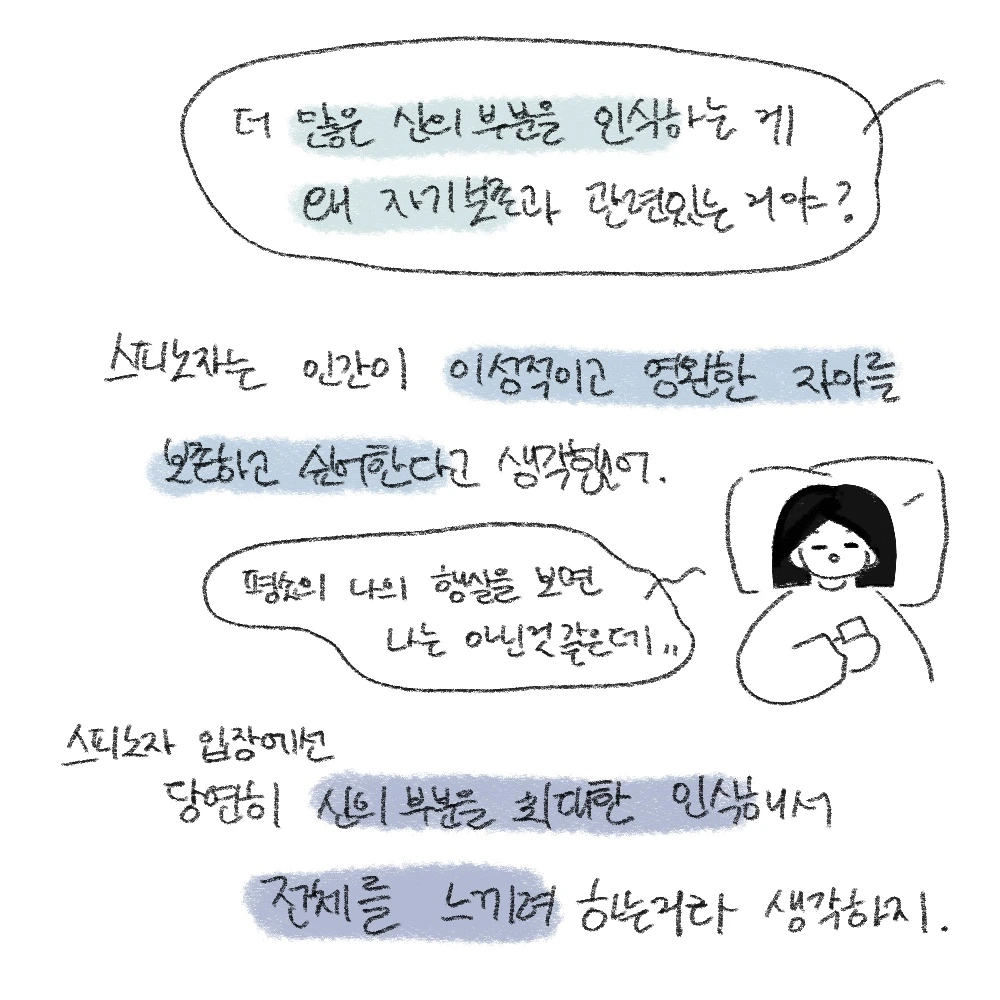 더 많은 신의 부분을 인식하는 게
왜 자기보존과 관련있는 거야?
스피노자는 인간이 이성적이고 영원한 자아를
보존하고 싶어한다고 생각했어.
평소의 나의 행실을 보면
나는 아닌것 같은데..
스피노자 입장에선
당연히 신의 부분을 최대한 인식해서
전체를 느끼려 하는거라 생각하지.